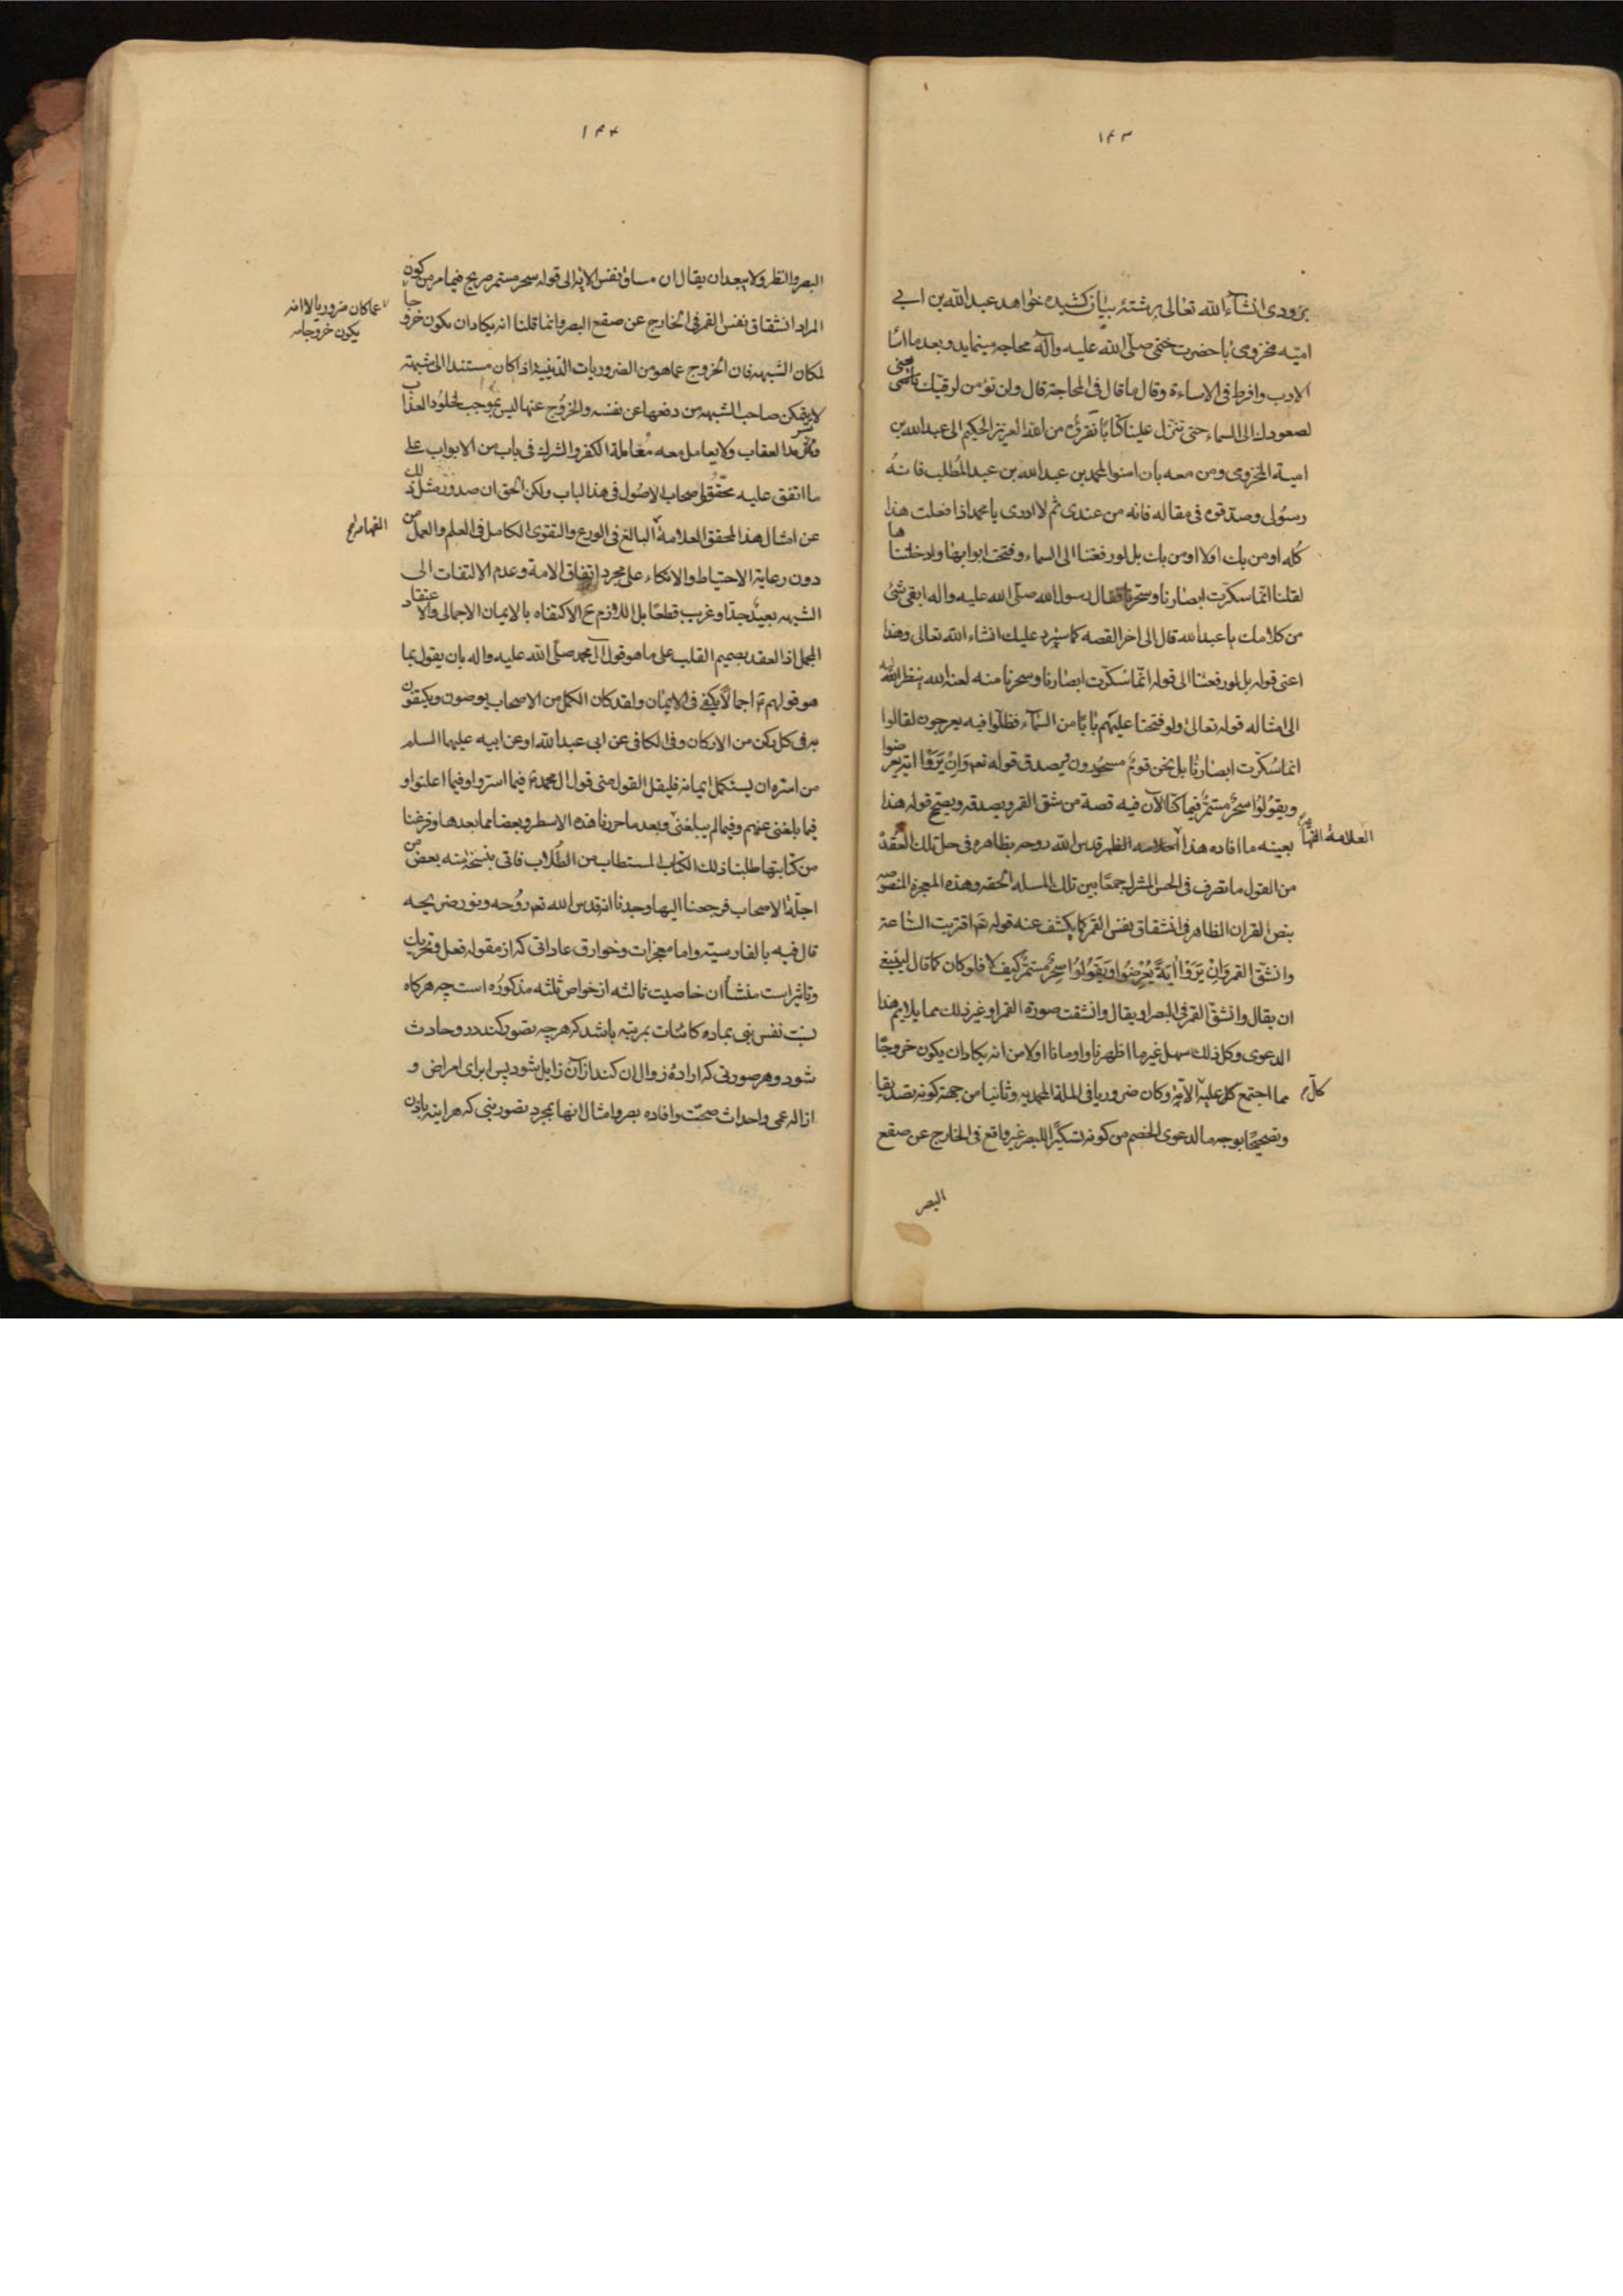 ۱۴۳
بزودی انشآء الله تعالی برشتهٔ بیان کشیده خواهد عبد الله بن ابی
امیّه مخزومی با حضرت ختمی صلّی الله علیه وآله محاجه مینماید و بعد ما اسآ
الادب وافرط فی الاساءة وقال ما قال فی المحاجة قال ولن نؤمن لرقیّك یا محمد
لصعودك الی السماء حتی تنزل علینا کتابًا نقرؤه من الله العزیز الحکیم الی عبد الله بن
امیة المخزومی ومن معه بان امنوا لمحمد بن عبد الله بن عبد المُطلب فانهُ
رسُولی وصدّقوه فی مقاله فانه من عندی ثم لا ادری یا محمد اذا فعلت هذا
کُله اومن بك اولا اومن بك بل لو رفعتنا الی السماء وفتحت ابوابها وادخلتناها
لقلنا انّما سکرّت ابصارنا وسحرتنا فقال رسول الله صلّی الله علیه واله ابقی شئ
من کلامك یا عبد الله قال الی اخر القصه کما سیُرد علیك انشاء الله تعالی وهذا
اعنی قوله بل لو رفعتنا الی قوله انّما سُکرّت ابصارنا وسحرنا منه لعنه الله ینظر الیه
الی امثاله قوله تعالی ولو فتحنا علیهم بابًا من السّمآء فظلّوا فیه یعرجون لقالوا
انما سُکرّت ابصارنا بل نحن قومٌ مسحُورون فیصدق قوله تعم وَاِنْ یَرَوْا ایة یعرضوا
ویقُولُوا سحرٌ مستمرٌ فیما کنّا الآن فیه قصة من شق القمر ویصدقه ویصحّ قوله هذا
بعینه ما افاده هذا العلامه قدس الله روحه بظاهره فی حل تلك العُقدة
العلامة الفهامة
من القول ما تصرف فی الحس المشترك جمعًا بین تلك المسله الحقه وهذه المعجزة المنصوصه
بنص القران الظاهر فی انشقاق نفس القمر کما یکشف عنه قوله تعم اقتربت السّاعة
وانشقّ القمر وَاِنْ یَرَوْا اٰیَةً یُعْرِضُوا وَیَقُولُوا سِحْرٌ مُستمرٌ کیف لا فلو کان کما قال لینبغی
ان یقال وانشقّ القمر فی البصر او یقال وانشقت صورة القمر او غیر ذلك مما یلایم هذا
الدعوی وکل ذلك سهل غیر ما اظهرنا واومانا اولا من انه یکاد ان یکون خروجًا
مما اجتمع علیه الامّة وکان ضروریا فی الملة المحمدیه وثانیا من جهة کونه تصدیقا
وتصحیحًا بوجه ما لدعوی الخصم من کونه تسکیرًا للبصر غیر واقع فی الخارج عن صقع
البصر
۱۴۴
البصر والنظر ولا یبعد ان یقال ان مساق نفس الایة الی قوله سحر مستمر صریح فیما مر من کون
المراد انشقاق نفس القمر فی الخارج عن صقع البصر وانما قلنا انه یکاد ان یکون خروجا
عما کان ضروریا لا انه
یکون خروجا
لمکان الشبهه فان الخروج عما هو من الضروریات الدّینیة اذا کان مستندا الی شبهة
لا یتمکن صاحب الشبهه من دفعها عن نفسه والخروُج عنها لیس بموجب لخلُود العذاب
العقاب ولا یعامل معه مُعاملة الکفر والشرك فی باب من الابواب علی
ما اتفق علیه محقّقوا اصحاب الاصُول فی هذا الباب ولکن الحق ان صدور مثل ذلك
عن امثال هذا المحقق العلامة البالغ فی الورع والتقوی الکامل فی العلم والعمل من
الفهامه
دون رعایة الاحتیاط والاتکاء علی مجرد اتفاق الامة وعدم الالتفات الی
الشبهه بعیدٌ جدّا وغریب قطعًا بل اللازم ح الاکتفاه بالایمان الاجمالی والاعتقاد
المجمل اذ العقد بصمیم القلب علی ما هو قول آل محمد صلّی الله علیه واله بان یقول بما
هو قولهم اجمالاً یکفی فی الایمان ولقد کان الکمل من الاصحاب یوصون ویکتفون
به فی کل رکن من الارکان وفی الکافی عن ابی عبد الله او عن ابیه علیهما السلم
من اسره ان یستکمل ایمانه فلیقل القول منی قول ال محمد فیما اسرّوا وفیما اعلنوا و
فیما بلغنی عنهم وفیما لم یبلغنی وبعد ما حررنا هذه الاسطر وبعضا مما بعدها وفرغنا
من کتابتها طلبنا ذلك الکتاب المستطاب من الطُلاب فاتی بنسخة منه بعض من
اجلّة الاصحاب فرجعنا الیها وجدنا انه قدس الله تعم روُحه ونور ضریحه
قال فیه بالفارسیّه واما معجزات وخوارق عاداتی که از مقوله فعل وتحریك
وتاثیر است منشأ ان خاصیت ثالثه از خواص ثلثه مذکوُره است چه هرکاه
نسبت نفس نبی بماده کائنات بمرتبه باشد که هرچه تصور کند در و حادث
شود و هر صورتی که ارادهٔ زوال ان کند از آن زایل شود پس ابرای امراض و
ازاله عمی و احداث صحّت و افاده بصر و امثال انها بمجرد تصور نبی که هر اینه باذن